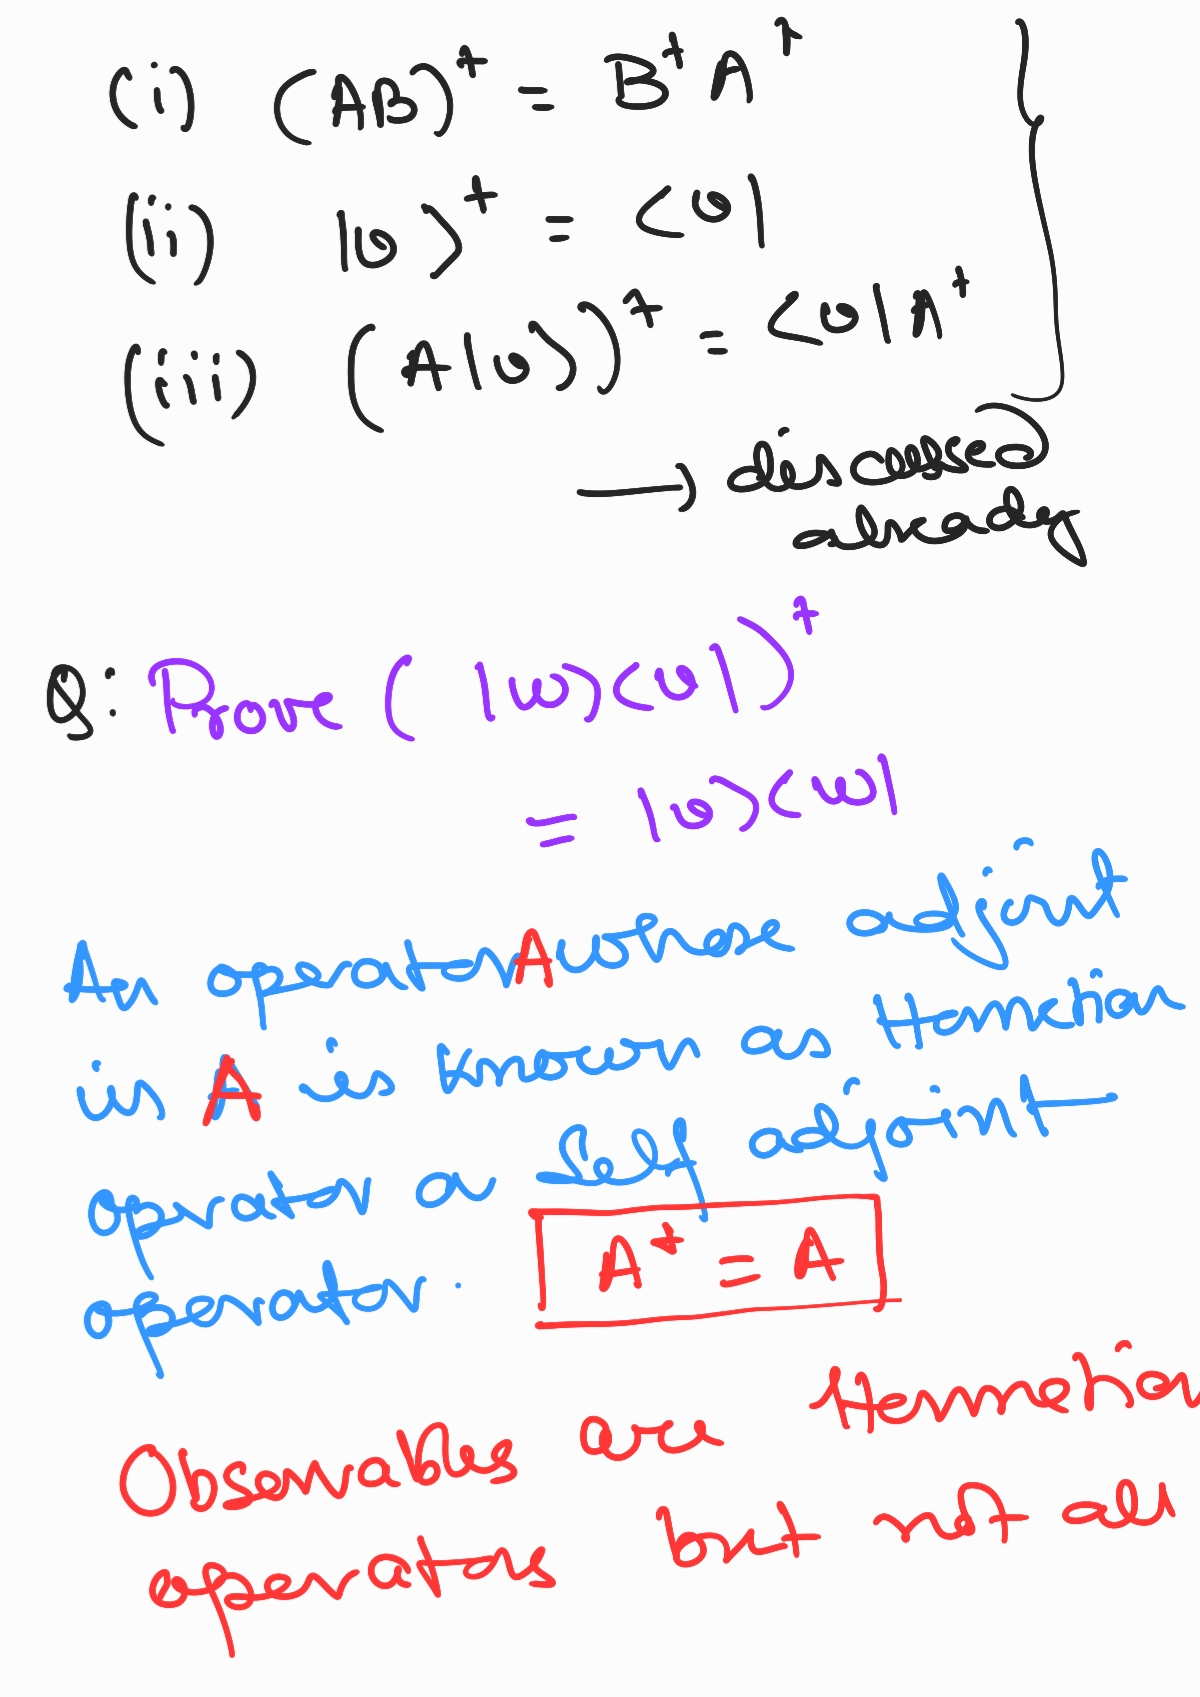 (i) (AB)† = B† A†
(ii) |v⟩† = ⟨v|
(iii) (A|v⟩)† = ⟨v|A†
→ discussed
already
Q: Prove (|w⟩⟨v|)†
= |v⟩⟨w|
An operator A whose adjoint
is A is known as Hermetian
oprator or Self adjoint
operator. A† = A
Observables are Hermetian
operators but not all